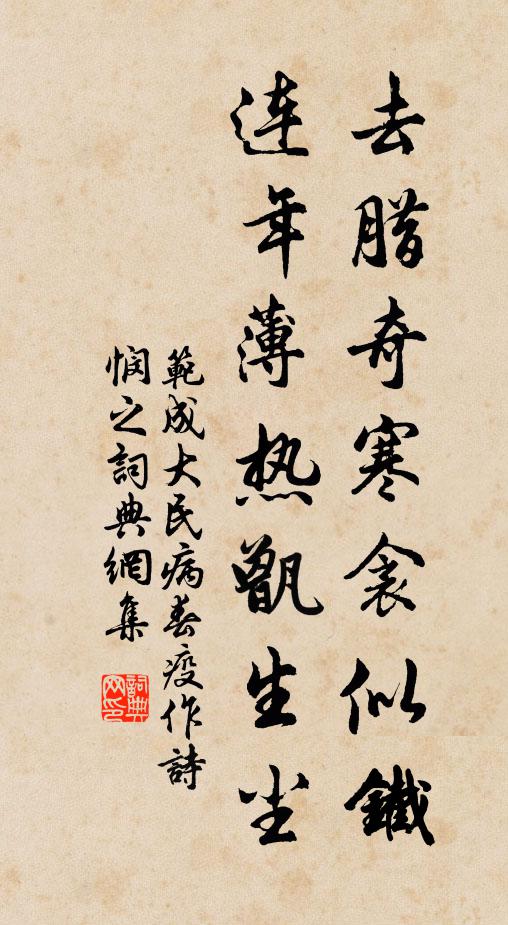 去腊奇寒衾似鐵
连年薄热甑生尘
範成大民病春疫作詩
憫之詞典網集
詞典网印